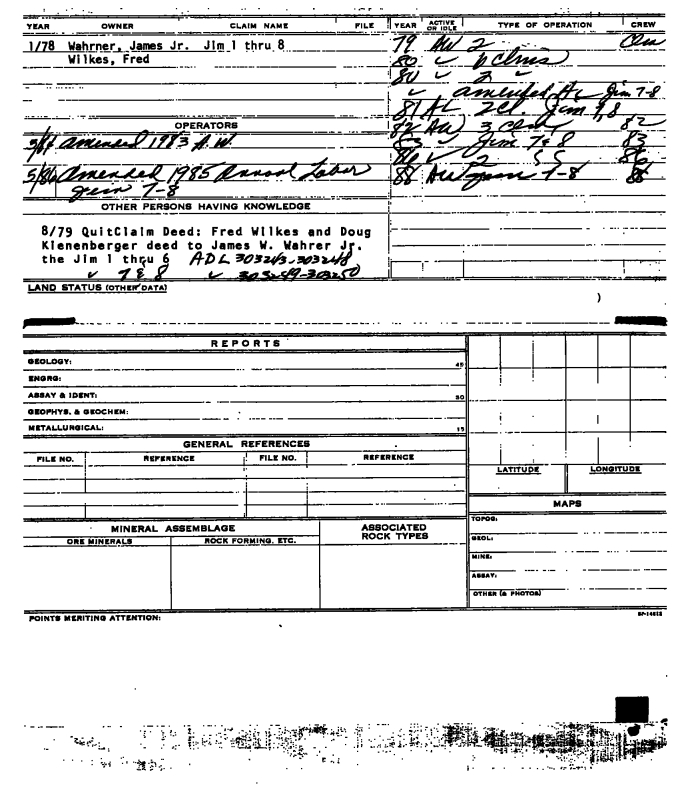 YEAR OWNER CLAIM NAME FILE YEAR ACTIVE OR IDLE TYPE OF OPERATION CREW
1/78 Wahrner, James Jr. Jim 1 thru 8
Wilkes, Fred
79 AW 2
80 ✓
80 ✓ 2 ✓
✓ amended AL Jim 7-8
81 AL 2 cl. Jim 7,8
82 AW 3 82
83 ✓ Jim 7 & 8 83
86 ✓ 2 86
88 AW Jim 7-8
OPERATORS
amended 1983 A.W.
5/86 Amended 1985 Annual Labor
Jim 7-8
OTHER PERSONS HAVING KNOWLEDGE
8/79 QuitClaim Deed: Fred Wilkes and Doug
Klenenberger deed to James W. Wahrer Jr.
the Jim 1 thru 6 ADL 303243-303248
✓ 7 & 8 ✓ 303249-303250
LAND STATUS (OTHER DATA)
REPORTS
GEOLOGY: 45
ENGRG:
ASSAY & IDENT: 30
GEOPHYS. & GEOCHEM:
METALLURGICAL: 15
GENERAL REFERENCES
FILE NO. REFERENCE FILE NO. REFERENCE
LATITUDE LONGITUDE
MAPS
TOPOG:
GEOL:
MINE:
ASSAY:
OTHER (& PHOTOS)
MINERAL ASSEMBLAGE ASSOCIATED ROCK TYPES
ORE MINERALS ROCK FORMING, ETC.
POINTS MERITING ATTENTION: